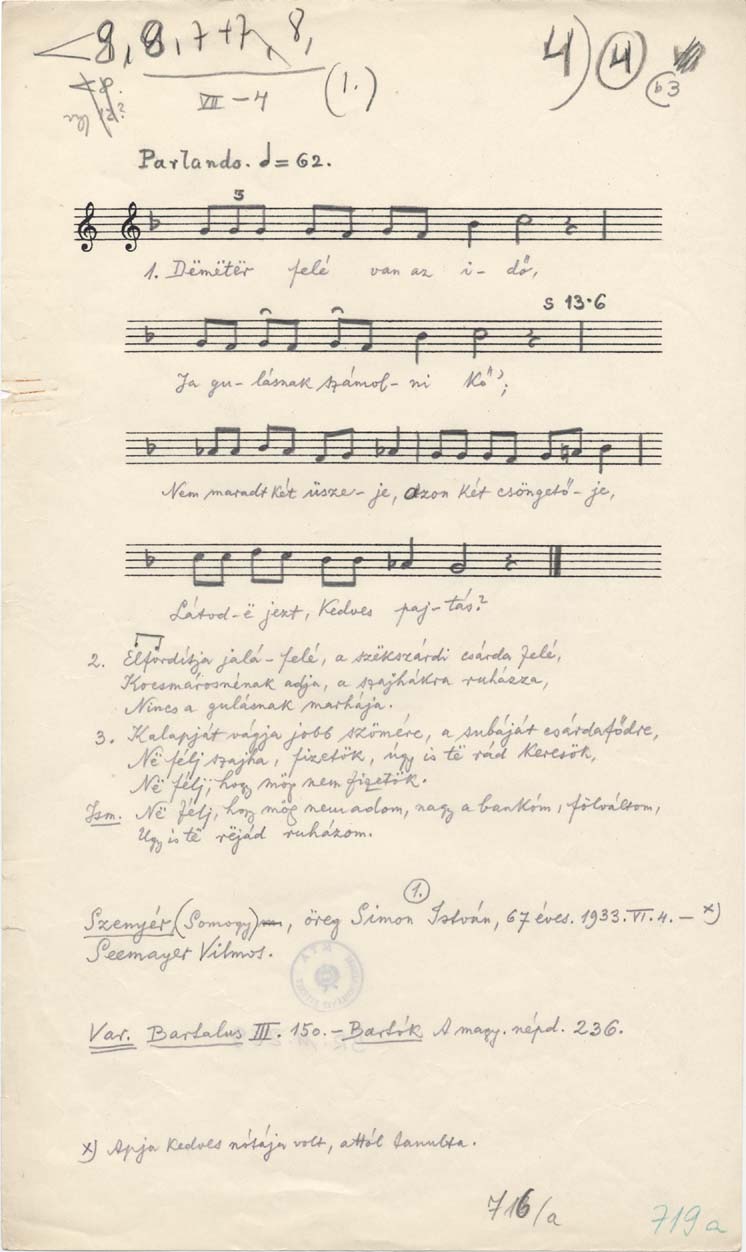 8, 8, 7+7, 8,
VII - 4 (1.)
4) 4 b3
Parlando. = 62.
3
1. Dëmëtër felé van az i - dő,
S 13·6
Ja gu - lásnak számol - ni Kő;
Nem maradt két üsze - je, azon két csöngető - je,
Látod - ë jezt, Kedves paj - tás?
2. Elfordítja jalá - felé, a szëkszárdi csárda felé,
Kocsmárosnénak adja, a szajhákra ruházza,
Nincs a gulásnak marhája.
3. Kalapját vágja jobb szömére, a subáját csárdafődre,
Në félj szajha, fizetök, úgy is të rád keresök,
Në félj, hogy mög nem fizetök.
Ism. Në félj, hogy mög nem adom, nagy a bankóm, fölváltom,
Ugy is të rëjád ruházom.
1.
Szenyér (Somogy), öreg Simon István, 67 éves. 1933. VI. 4. - x)
Seemayer Vilmos.
Var. Bartalus III. 150. - Bartók A magy. népd. 236.
x) Apja kedves nótája volt, attól tanulta.
716/a
719 a